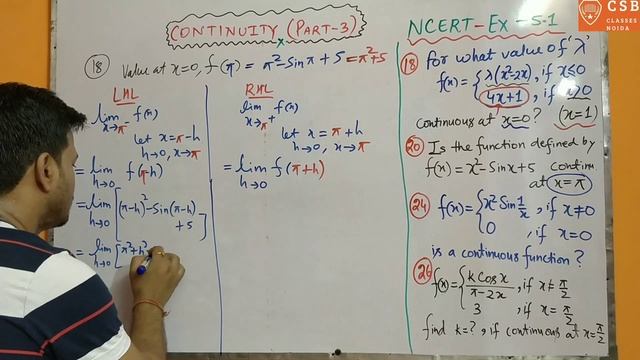 CONTINUITY (PART-3)
NCERT-Ex-5.1
CSB
CLASSES
NOIDA
(18) Value at x=0, f(π) = π²-Sinπ+5 = π²+5
LHL
lim f(x)
x→π⁻
let x=π-h
h→0, x→π
= lim f(π-h)
h→0
= lim [(π-h)²-Sin(π-h)
h→0 +5]
= lim [π²+h²
h→0
RHL
lim f(x)
x→π⁺
let x = π+h
h→0, x→π
= lim f(π+h)
h→0
(18) For what value of 'λ'
f(x) = { λ(x²-2x), if x≤0
4x+1, if x>0
continuous at x=0? (x=1)
(20) Is the function defined by
f(x) = x²-Sinx+5 contin.
at x=π
(24) f(x) = { x² Sin 1/x, if x≠0
0, if x=0
is a continuous function?
(26) f(x) = { k Cosx / π-2x, if x≠π/2
3, if x=π/2
find k=?, if continuous at x=π/2